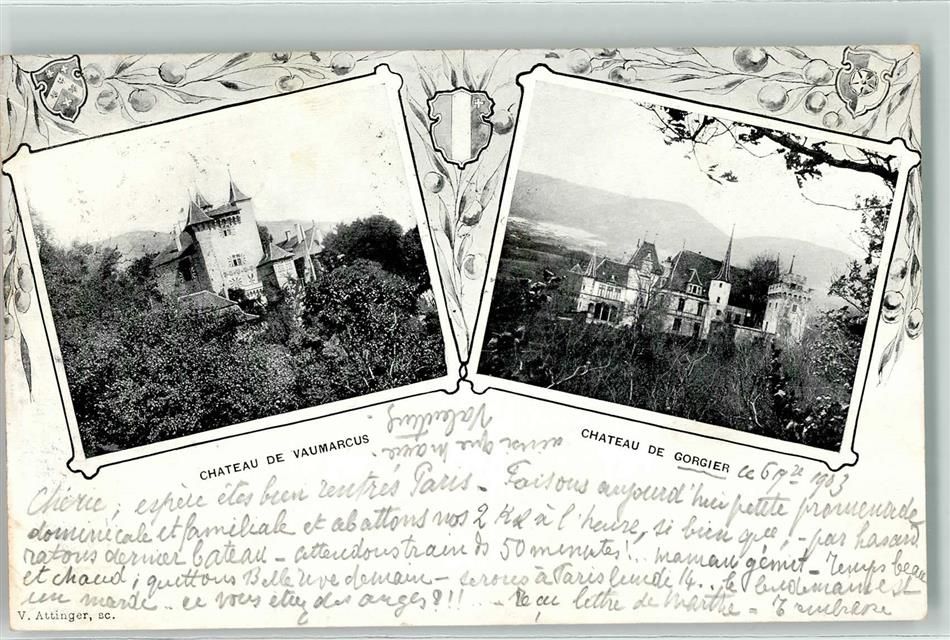 CHATEAU DE VAUMARCUS
CHATEAU DE GORGIER
ce 6 7re 1903
Chérie, espère êtes bien rentrés Paris - Faisons aujourd'hui petite promenade
dominicale et familiale et abattons nos 2 K à l'heure, si bien que, - par hasard
ratons dernier bateau - attendons train 50 minutes!.. maman gémit - Temps beau
et chaud; quittons Bellerive demain - serons à Paris lundi 14... le lendemain est
un mardi. ce vous êtes des anges?!! - Reçu lettre de Marthe - Tendresse
ainsi que maman.
Valentine
V. Attinger, sc.